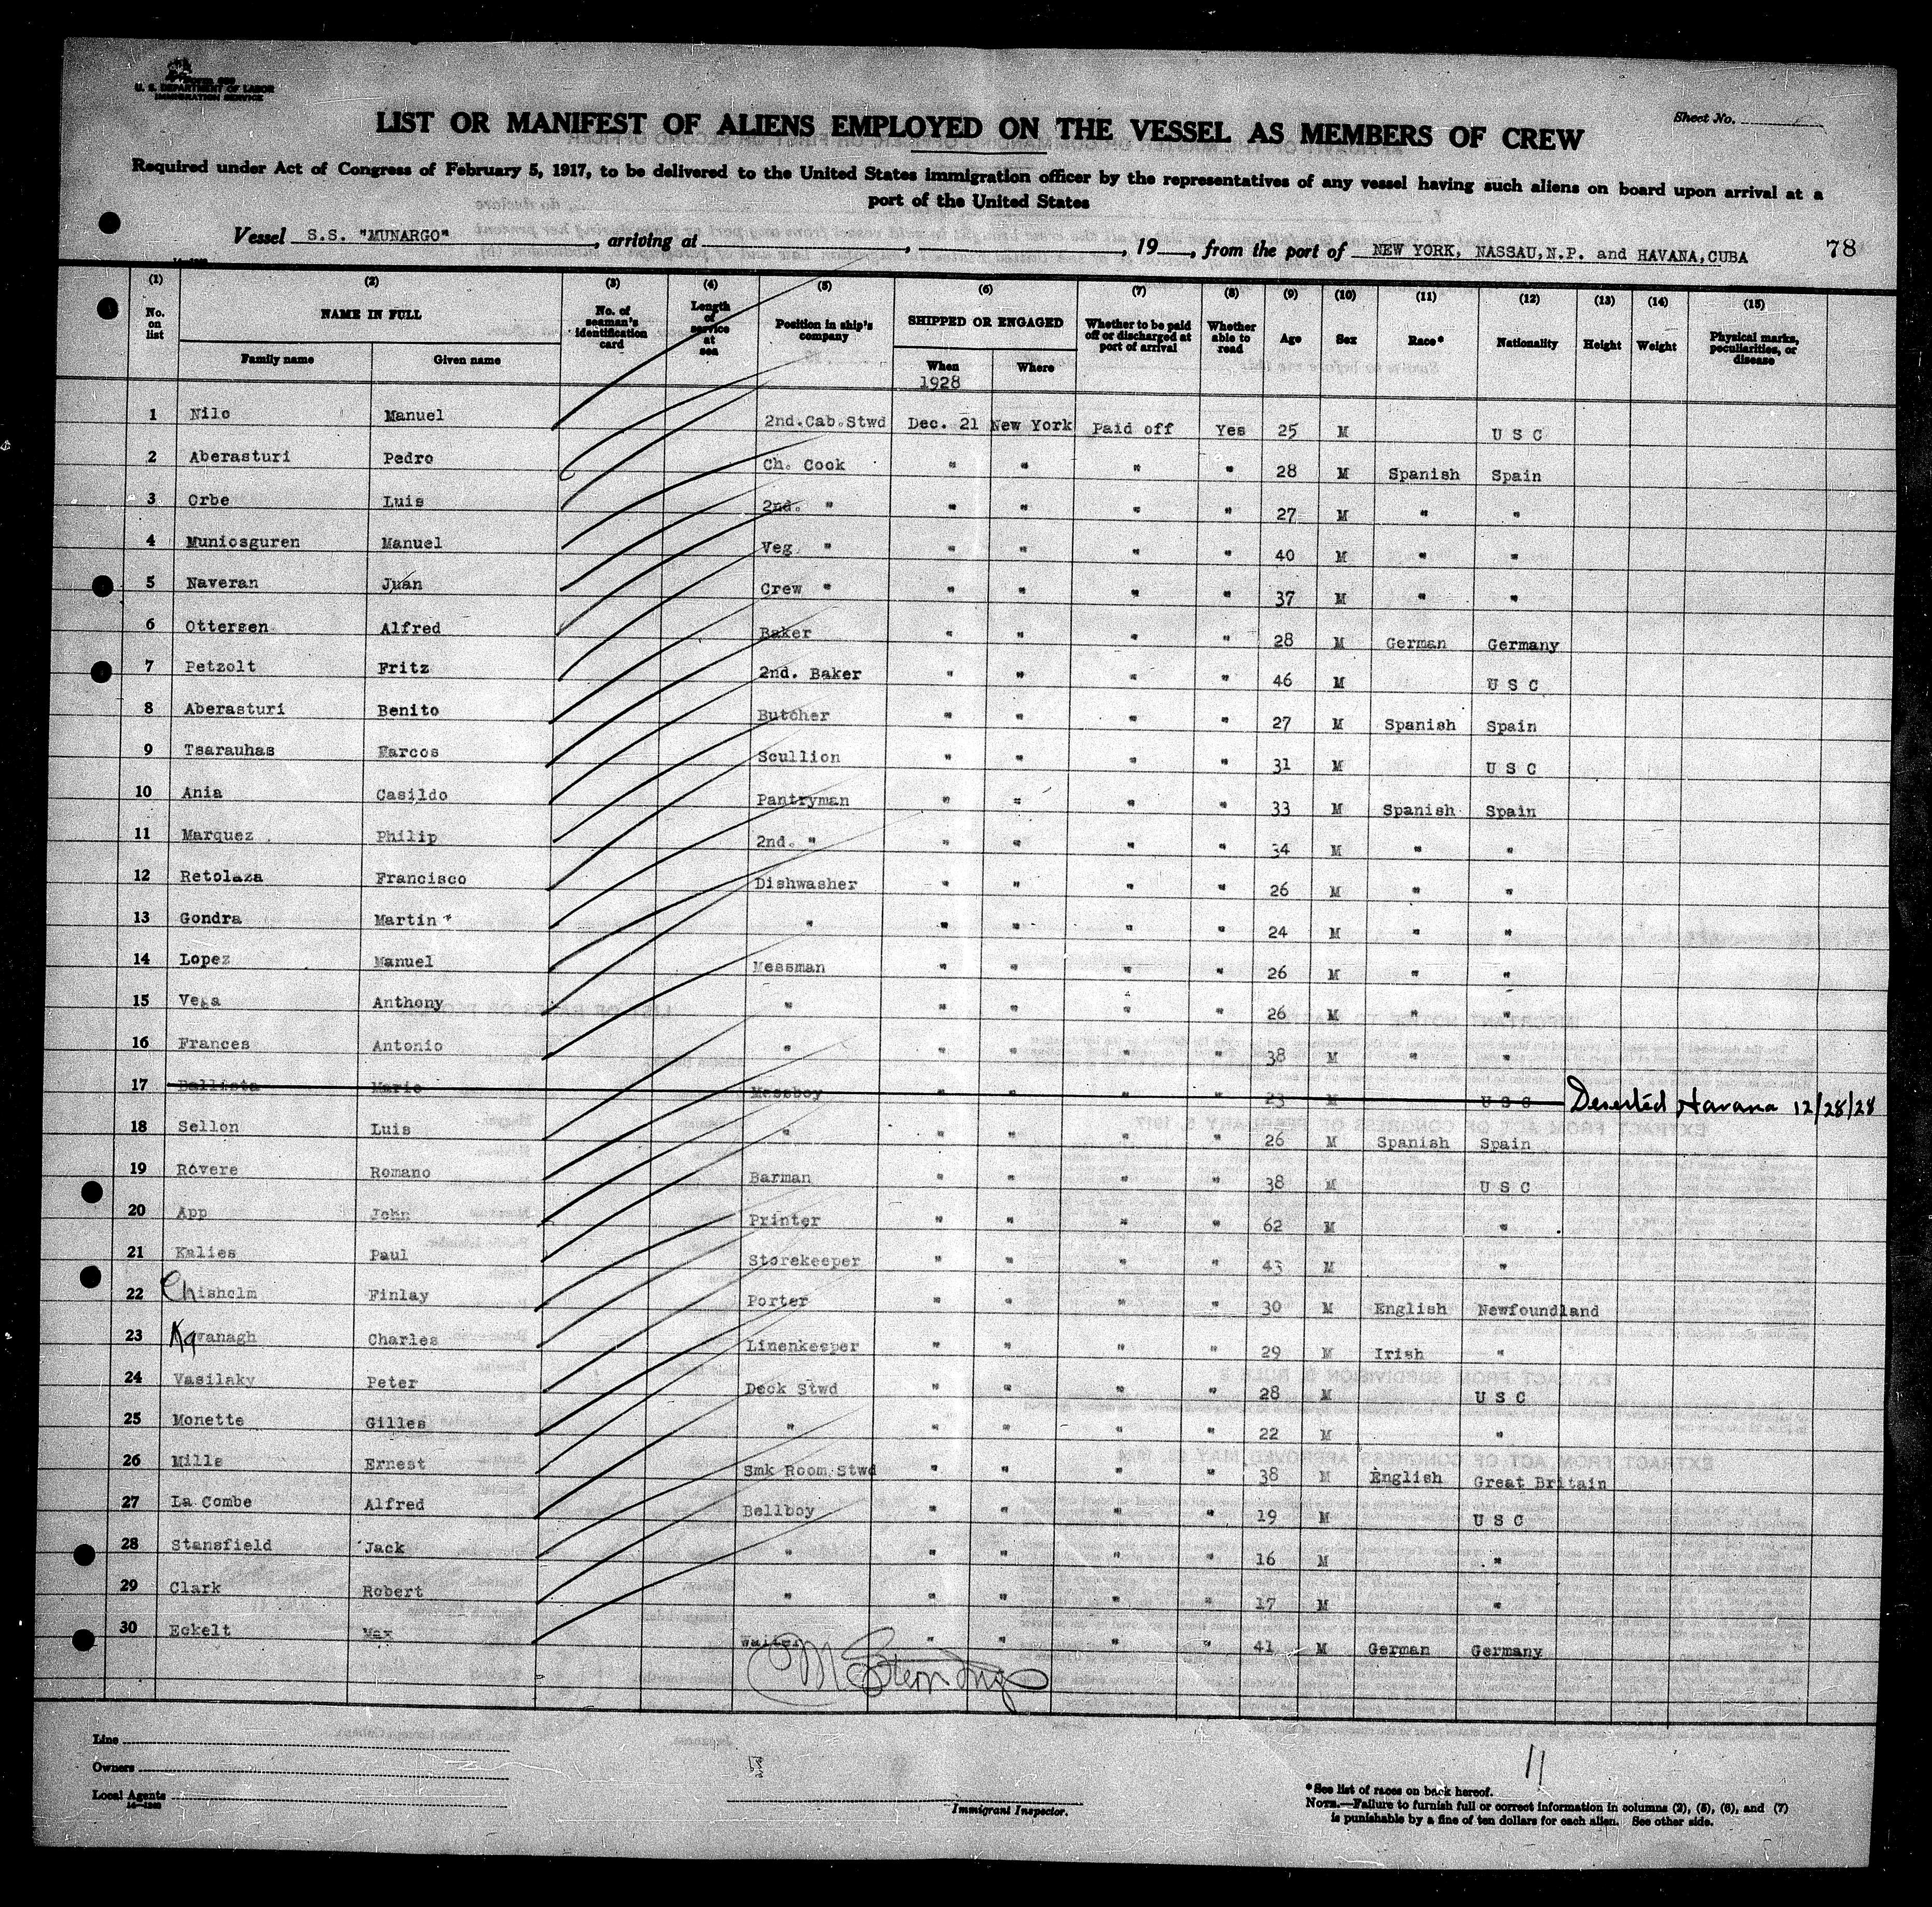 U. S. DEPARTMENT OF LABOR
IMMIGRATION SERVICE
Sheet No.
LIST OR MANIFEST OF ALIENS EMPLOYED ON THE VESSEL AS MEMBERS OF CREW
Required under Act of Congress of February 5, 1917, to be delivered to the United States immigration officer by the representatives of any vessel having such aliens on board upon arrival at a
port of the United States
Vessel S.S. "MUNARGO", arriving at , , 19 , from the port of NEW YORK, NASSAU, N.P. and HAVANA, CUBA 78
(1) (2) (3) (4) (5) (6) (7) (8) (9) (10) (11) (12) (13) (14) (15)
No. on list NAME IN FULL Family name Given name No. of seaman's identification card Length of service at sea Position in ship's company SHIPPED OR ENGAGED When Where Whether to be paid off or discharged at port of arrival Whether able to read Age Sex Race* Nationality Height Weight Physical marks, peculiarities, or disease
1928
1 Nilo Manuel 2nd.Cab.Stwd Dec. 21 New York Paid off Yes 25 M U S C
2 Aberasturi Pedro Ch. Cook " " " " 28 M Spanish Spain
3 Orbe Luis 2nd. " " " " " 27 M " "
4 Muniosguren Manuel Veg. " " " " " 40 M " "
5 Naveran Juan Crew " " " " " 37 M " "
6 Ottersen Alfred Baker " " " " 28 M German Germany
7 Petzolt Fritz 2nd. Baker " " " " 46 M U S C
8 Aberasturi Benito Butcher " " " " 27 M Spanish Spain
9 Tsarauhas Marcos Scullion " " " " 31 M U S C
10 Ania Casildo Pantryman " " " " 33 M Spanish Spain
11 Marquez Philip 2nd. " " " " " 34 M " "
12 Retolaza Francisco Dishwasher " " " " 26 M " "
13 Gondra Martin " " " " " 24 M " "
14 Lopez Manuel Messman " " " " 26 M " "
15 Vega Anthony " " " " " 26 M " "
16 Frances Antonio " " " " " 38 M " "
17 Ballista Mario Messboy " " " " 23 M U S C Deserted Havana 12/28/28
18 Sellon Luis " " " " " 26 M Spanish Spain
19 Rovere Romano Barman " " " " 38 M U S C
20 App John Printer " " " " 62 M "
21 Kalies Paul Storekeeper " " " " 43 M "
22 Chisholm Finlay Porter " " " " 30 M English Newfoundland
23 Kavanagh Charles Linenkeeper " " " " 29 M Irish "
24 Vasilaky Peter Deck Stwd " " " " 28 M U S C
25 Monette Gilles " " " " " 22 M "
26 Mills Ernest Smk Room Stwd " " " " 38 M English Great Britain
27 La Combe Alfred Bellboy " " " " 19 M U S C
28 Stansfield Jack " " " " " 16 M "
29 Clark Robert " " " " " 17 M "
30 Eckelt Max Waiter " " " " 41 M German Germany
Line
Owners
Local Agents
Immigrant Inspector.
11
*See list of races on back hereof.
NOTE.—Failure to furnish full or correct information in columns (2), (5), (6), and (7)
is punishable by a fine of ten dollars for each alien. See other side.